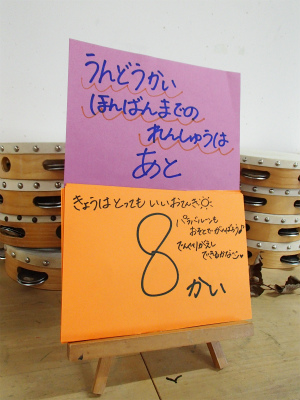 うんどうかい
ほんばんまでの
れんしゅうは
あと
きょうは とっても いいおてんき
8
かい
パラバルーンも
おそとで がんばろう♪
でんぐりがえし
できるかな